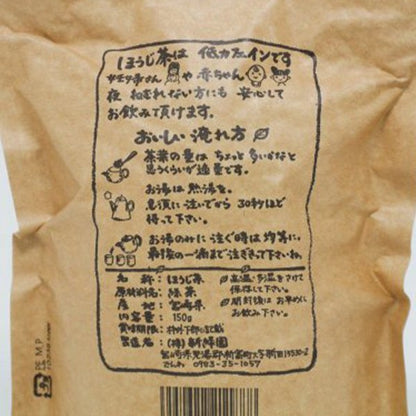 ほうじ茶は 低カフェインです
や 赤ちゃん
夜 ねむれない方にも 安心して
お飲みて頂けます。
おいしい 淹れ方
茶葉の量は ちょっと 多いかなと
思うくらいが適量です。
お湯は 熱湯を。
急須に 注いでから 30秒ほど
待って下さい。
お湯のみに 注ぐ時は 均等に。
最後の一滴まで注ぎきって下さいね。
名称:ほうじ茶
原材料名:緑茶
産地:宮崎県
内容量:150g
賞味期限:枠外下部に記載
製造者:(株)新緑園
宮崎県児湯郡新富町大字新田
でんわ 0983-35-1057
高温・多湿をさけて
保存して下さい。
開封後は お早めに
お飲み下さい。
PE M.P